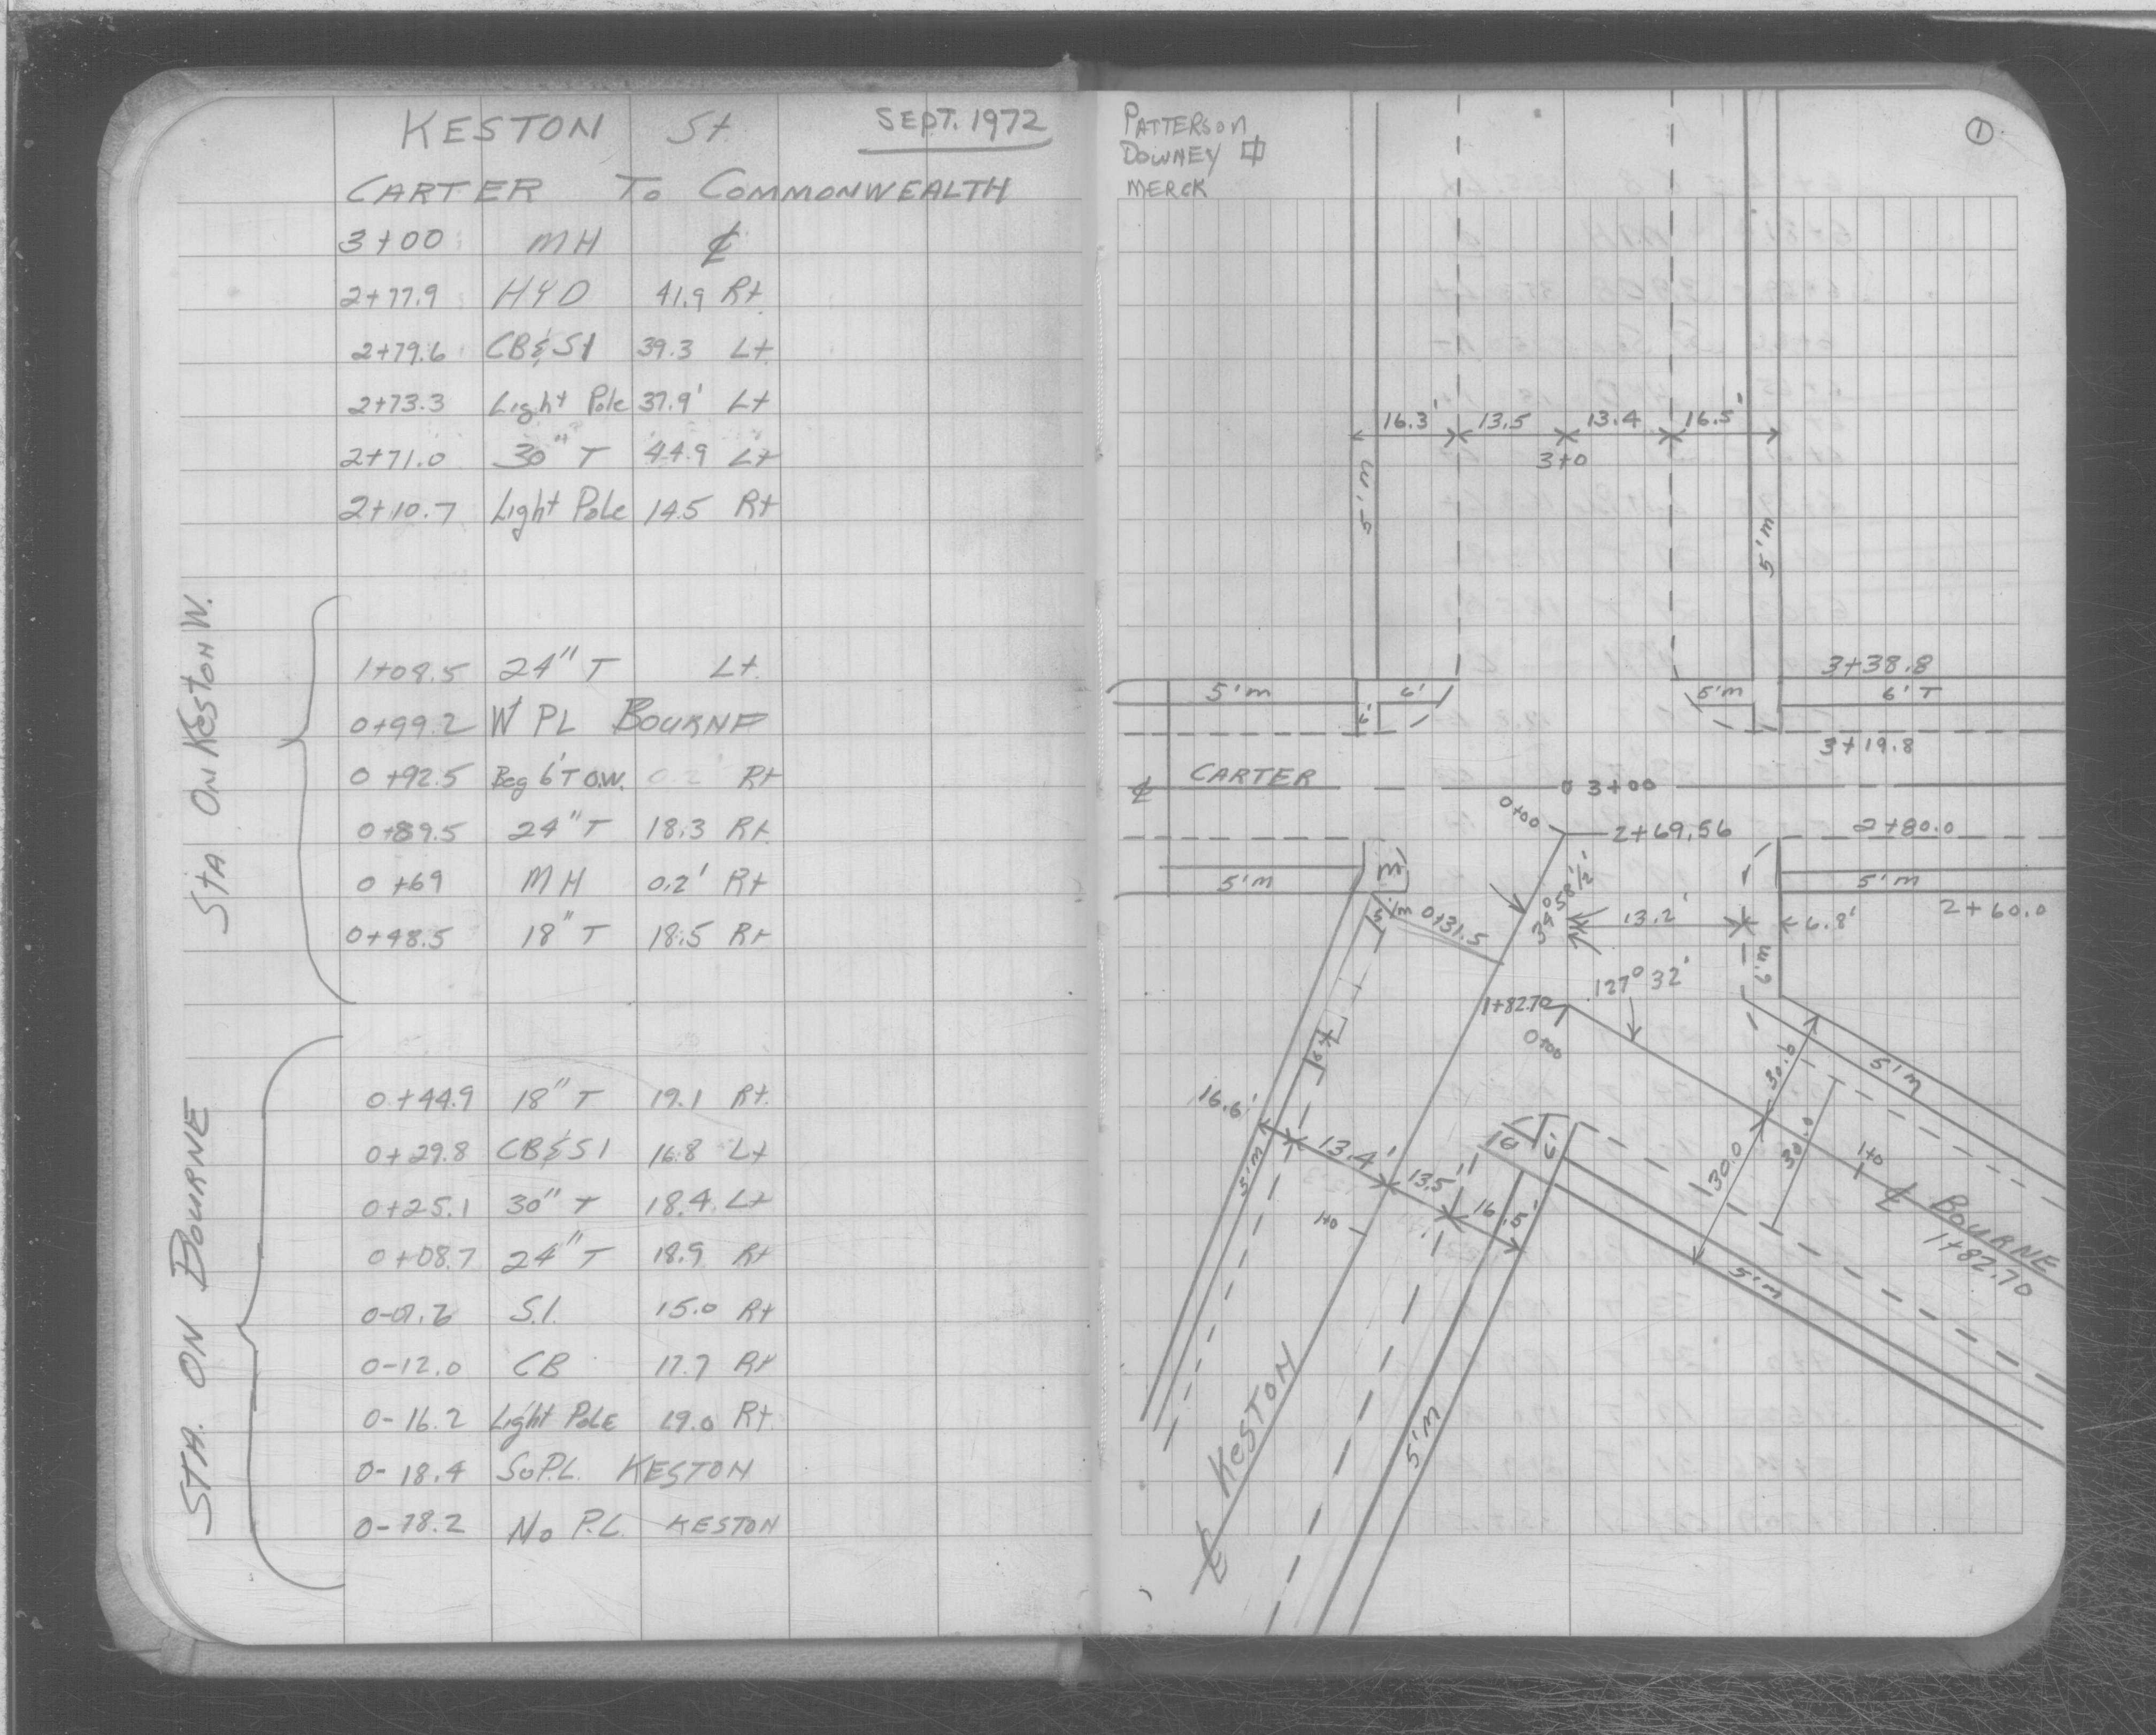 KESTON St. SEPT. 1972
CARTER TO COMMONWEALTH
3+00 MH ℄
2+77.9 HYD 41.9 Rt
2+79.6 CB&SI 39.3 Lt
2+73.3 Light Pole 37.9' Lt
2+71.0 30" T 44.9 Lt
2+10.7 Light Pole 14.5 Rt
STA ON KESTON W.
1+08.5 24" T Lt.
0+99.2 W PL BOURNE
0+92.5 Beg 6'T O.W. Rt
0+89.5 24" T 18.3 Rt
0+69 MH 0.2' Rt
0+48.5 18" T 18.5 Rt
STA. ON BOURNE
0+44.9 18" T 19.1 Rt.
0+29.8 CB&SI 16.8 Lt
0+25.1 30" T 18.4 Lt
0+08.7 24" T 18.9 Rt
S.I. 15.0 Rt
0-12.0 CB 17.7 Rt
0-16.2 Light Pole 19.0 Rt.
0-18.4 So P.L. KESTON
0-78.2 No P.L. KESTON
PATTERSON
DOWNEY
MERCK
1
16.3' 13.5 13.4 16.5'
3+0
5'm
5'm
3+38.8
5'm 6' 5'm 6'T
6'
3+19.8
℄ CARTER 3+00
0+00 2+69.56 2+80.0
m
5'm 5'm
5'm 0+31.5 34°58½' 13.2' 6.8' 2+60.0
6'm
127° 32'
1+82.70
0+00
30.0 5'm
16.6' 13.4' 13.5' 16.5'
6' 6'
5'm
30.0 30.0
1+0 1+0
℄ BOURNE
1+82.70
5'm
5'm
℄ KESTON